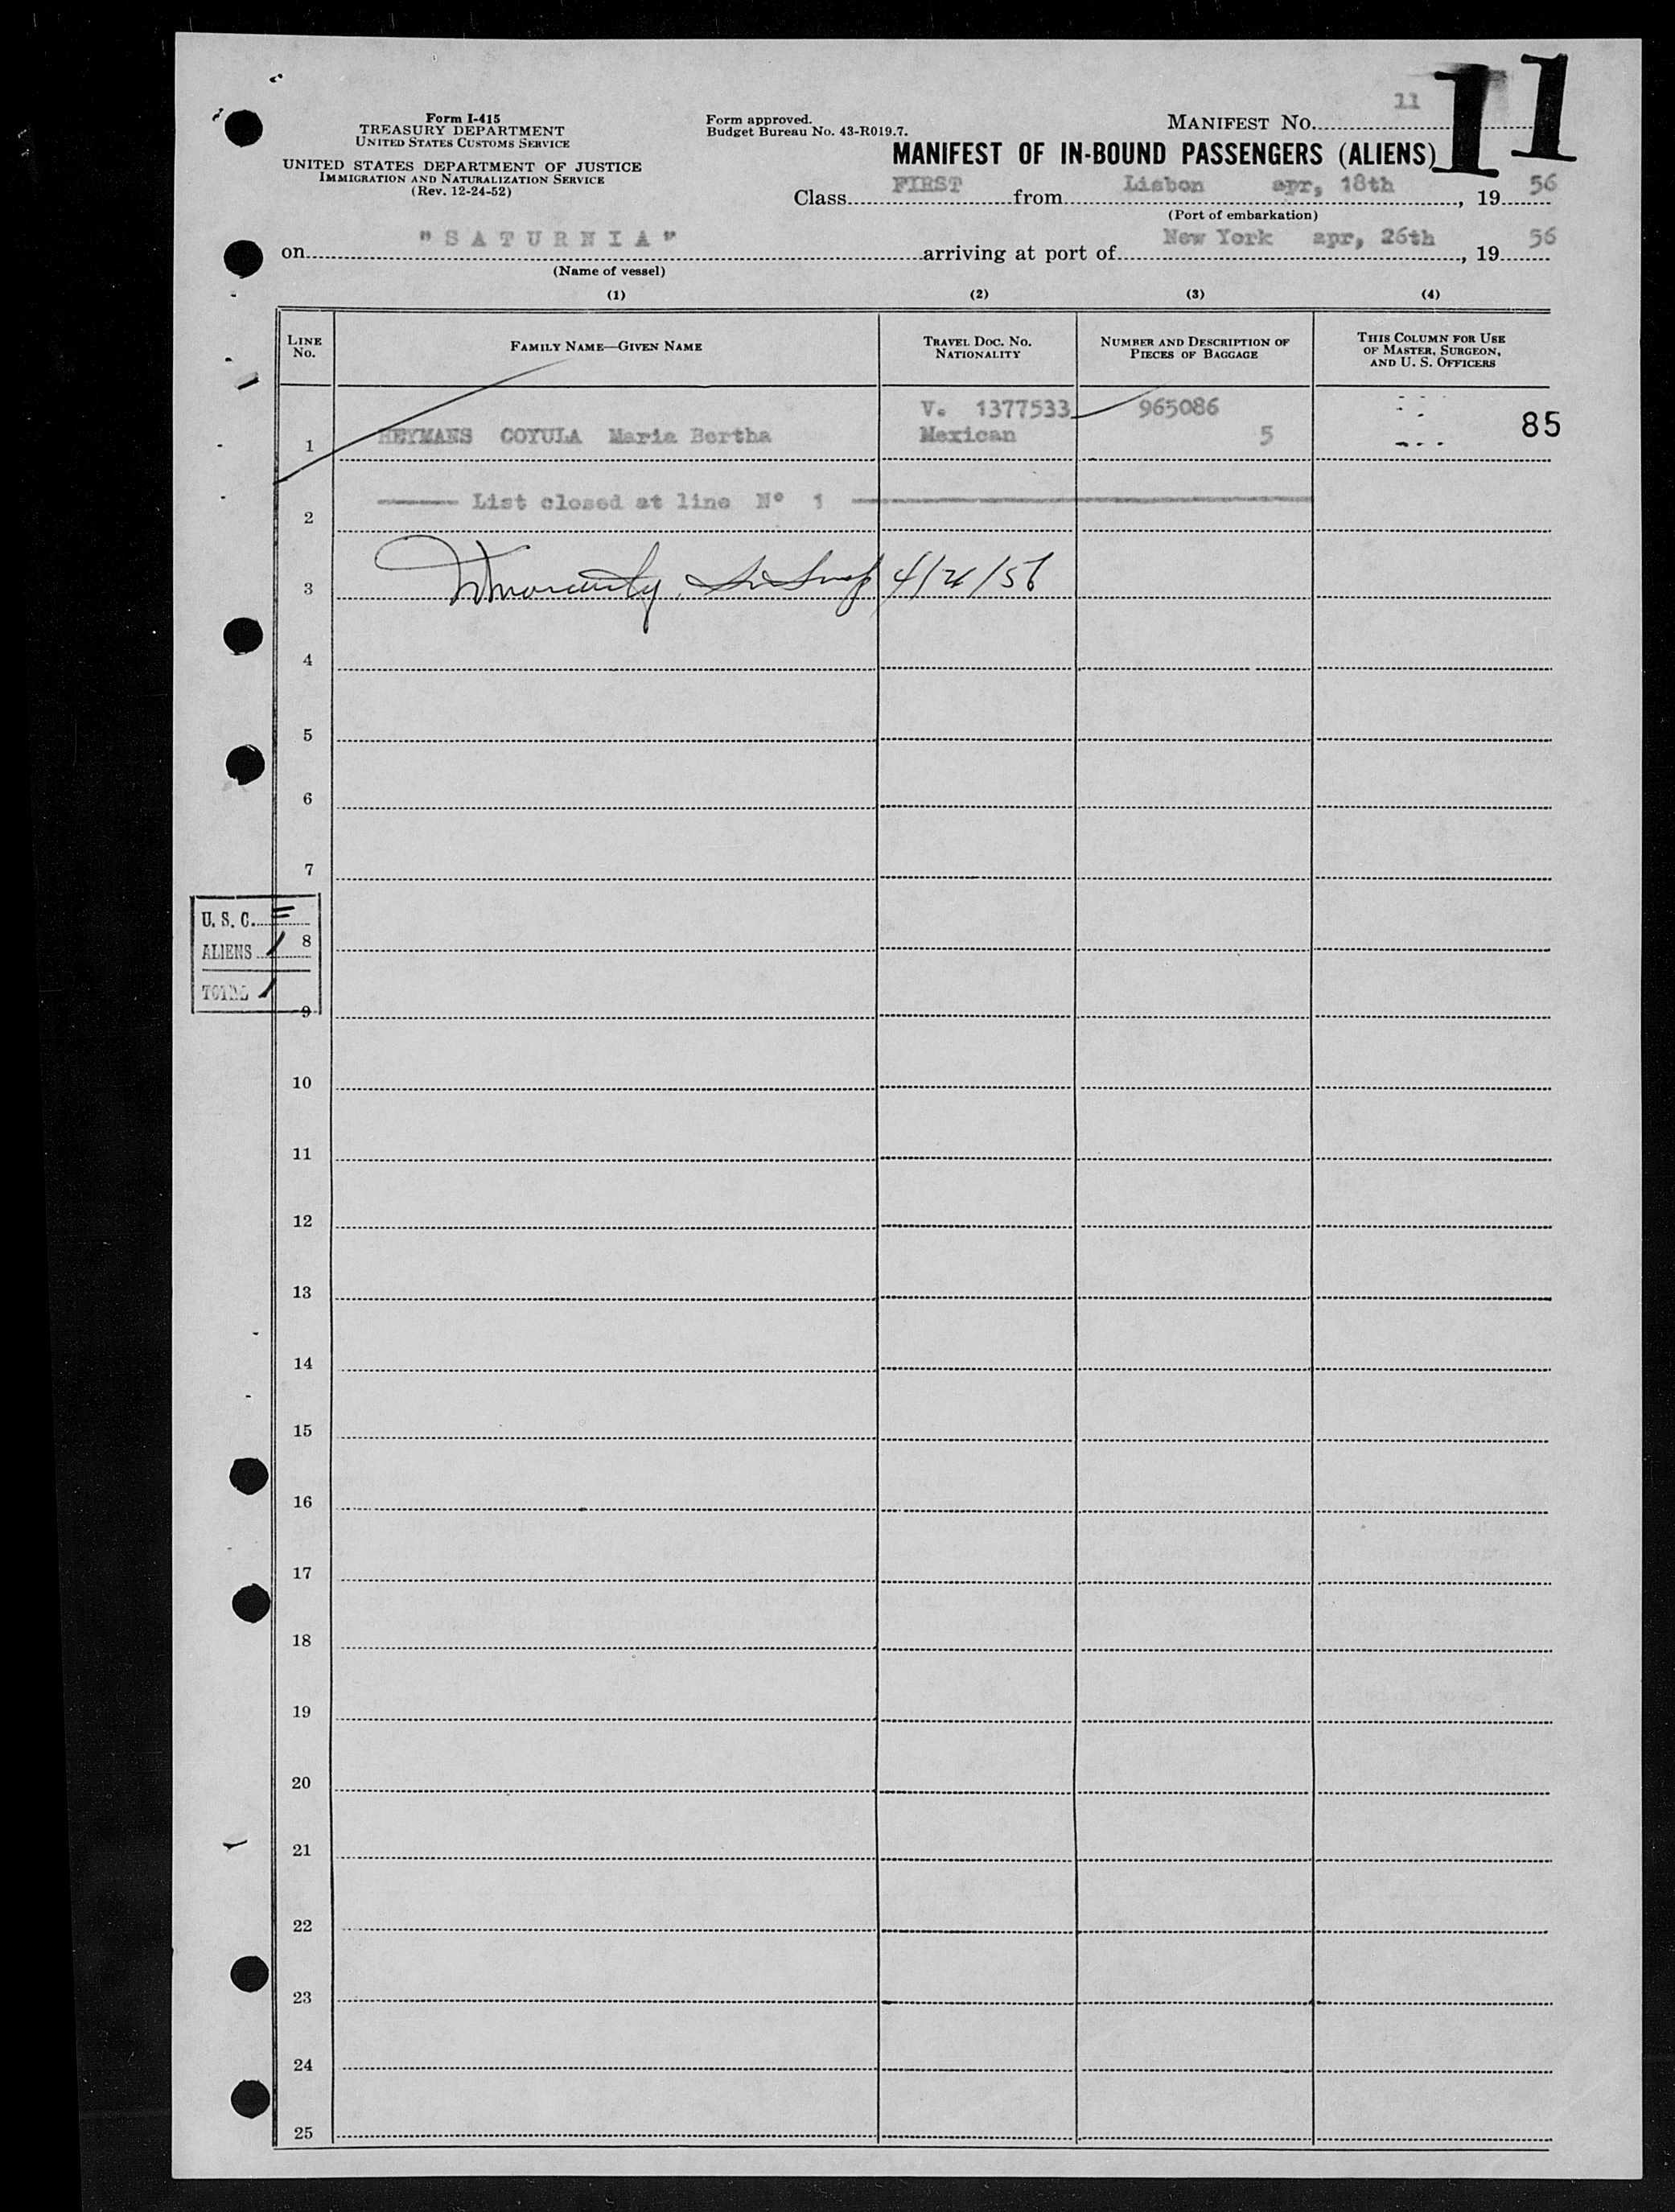 11
Form I-415
TREASURY DEPARTMENT
UNITED STATES CUSTOMS SERVICE
UNITED STATES DEPARTMENT OF JUSTICE
IMMIGRATION AND NATURALIZATION SERVICE
(Rev. 12-24-52)
Form approved.
Budget Bureau No. 43-R019.7.
MANIFEST NO. 11
MANIFEST OF IN-BOUND PASSENGERS (ALIENS)
Class FIRST from Lisbon apr, 18th, 19 56
(Port of embarkation)
on "SATURNIA" arriving at port of New York apr, 26th, 19 56
(Name of vessel)
(1) (2) (3) (4)
LINE NO.
FAMILY NAME—GIVEN NAME
TRAVEL DOC. NO. NATIONALITY
NUMBER AND DESCRIPTION OF PIECES OF BAGGAGE
THIS COLUMN FOR USE OF MASTER, SURGEON, AND U. S. OFFICERS
V. 1377533 965086
1 HEYMANS COYULA Maria Bertha Mexican 5 85
2 List closed at line Nº 1
3 4/26/56
4
5
6
7
U. S. C.
ALIENS 1 8
TOTAL 1
9
10
11
12
13
14
15
16
17
18
19
20
21
22
23
24
25